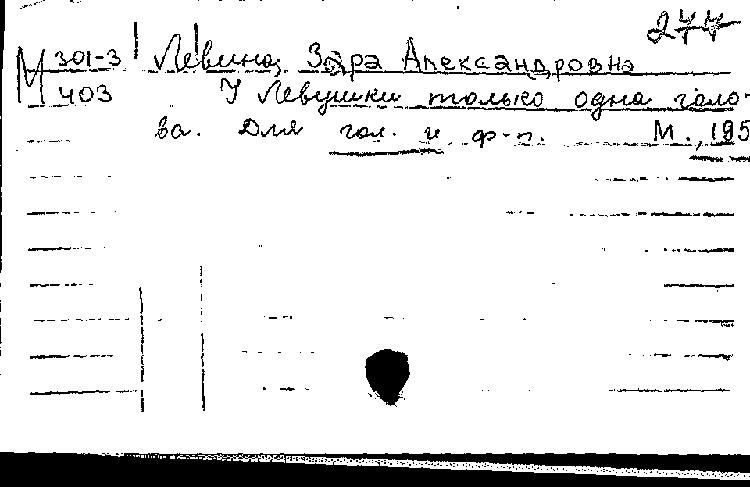 277
М 301-3 Левина, Зара Александровна
403 У Левушки только одна голо-
ва. Для гол. и ф-п. М., 195